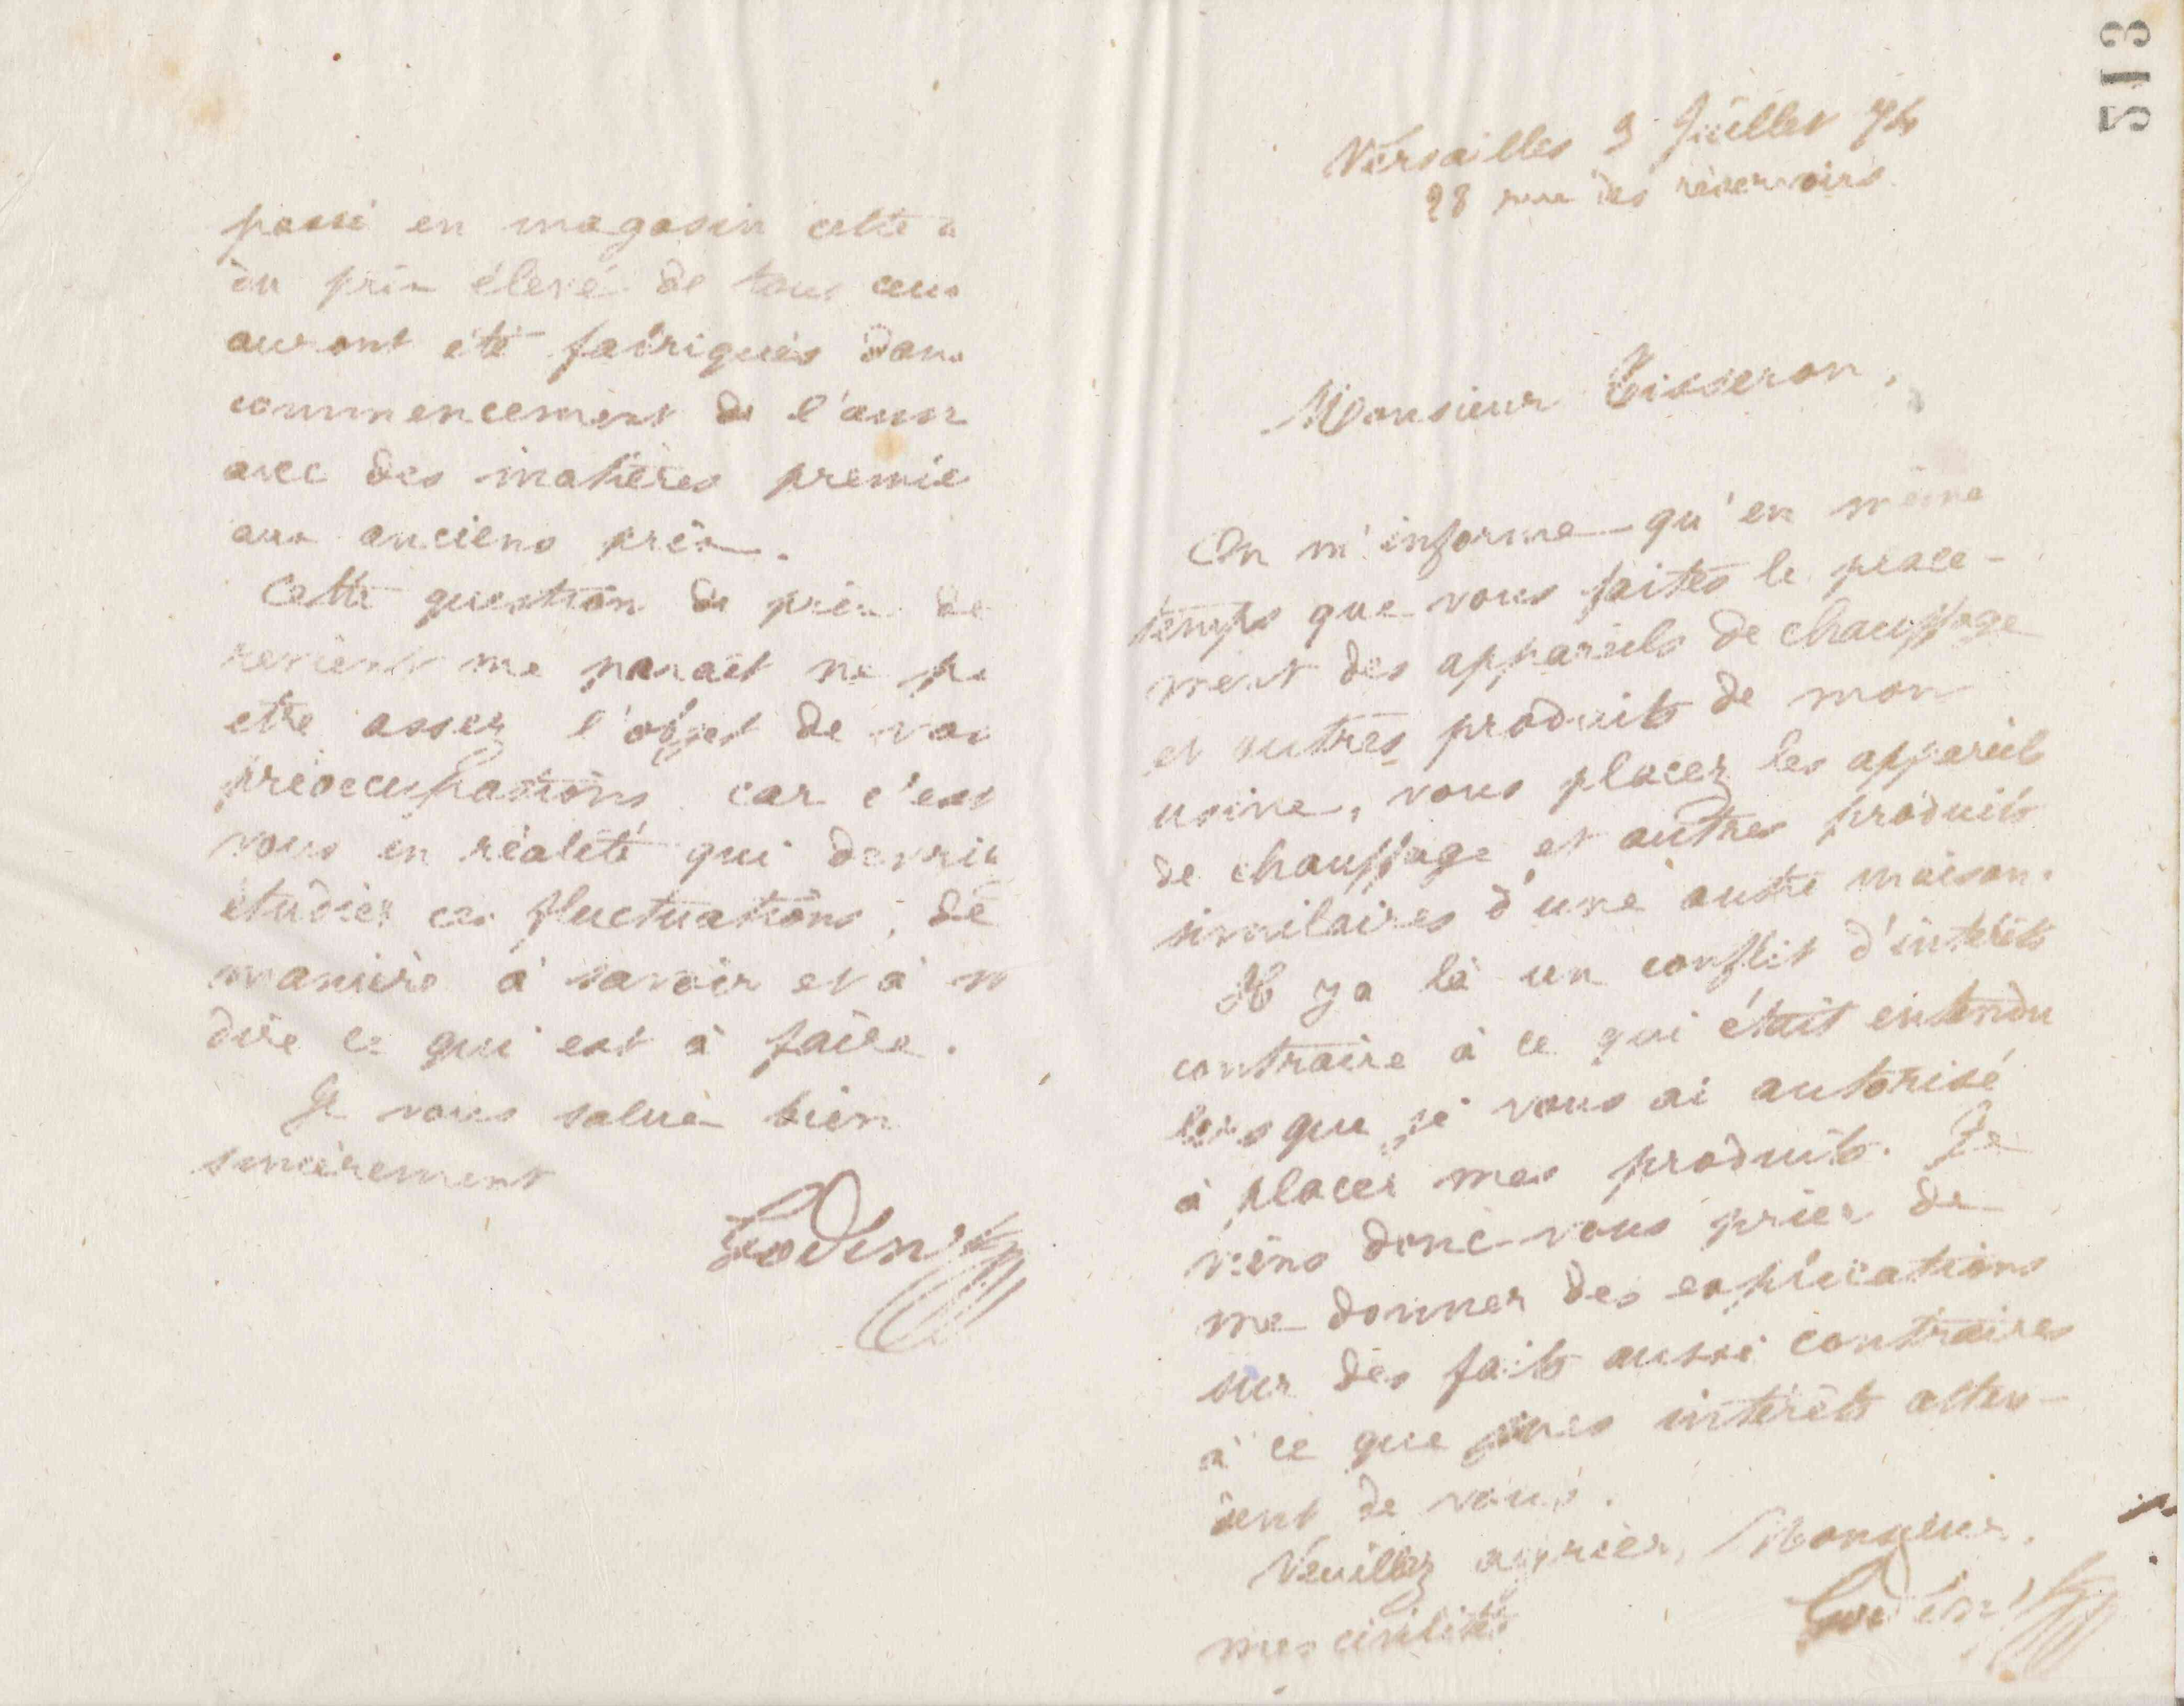 passé en magasin cette a
du prix élevé de tous ceux
auront été fabriqués dans
commencement de l'ann
avec des matières premiè
aux anciens prix.
Cette question de prix de
revient me paraît ne pa
etre assez l'objet de vos
préoccupations car c'est
vous en réalité qui devrie
étudier ces fluctuations, de
manière à savoir et à m
dire ce qui est à faire.
Je vous salue bien
sincèrement
Godin
513
Versailles 3 Juillet 74
28 rue des réservoirs
Monsieur Tisseron,
On m'informe qu'en même
temps que vous faites le place-
ment des appareils de chauffage
et autres produits de mon
usine, vous placez les appareils
de chauffage et autres produits
similaires d'une autre maison.
Il y a là un conflit d'intérêts
contraire à ce qui était entendu
lorsque je vous ai autorisé
à placer mes produits. Je
viens donc vous prier de
me donner des explications
sur des faits aussi contraires
à ce que mes intérêts atten-
dent de vous.
Veuillez agréer, Monsieur,
mes civilités
Godin